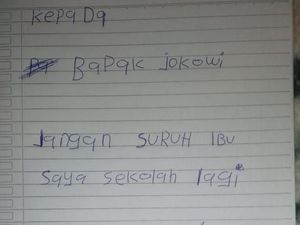 KepaDa
BaPaK jokowi
Jangan SURUH IBU
Saya Sekolah lagi